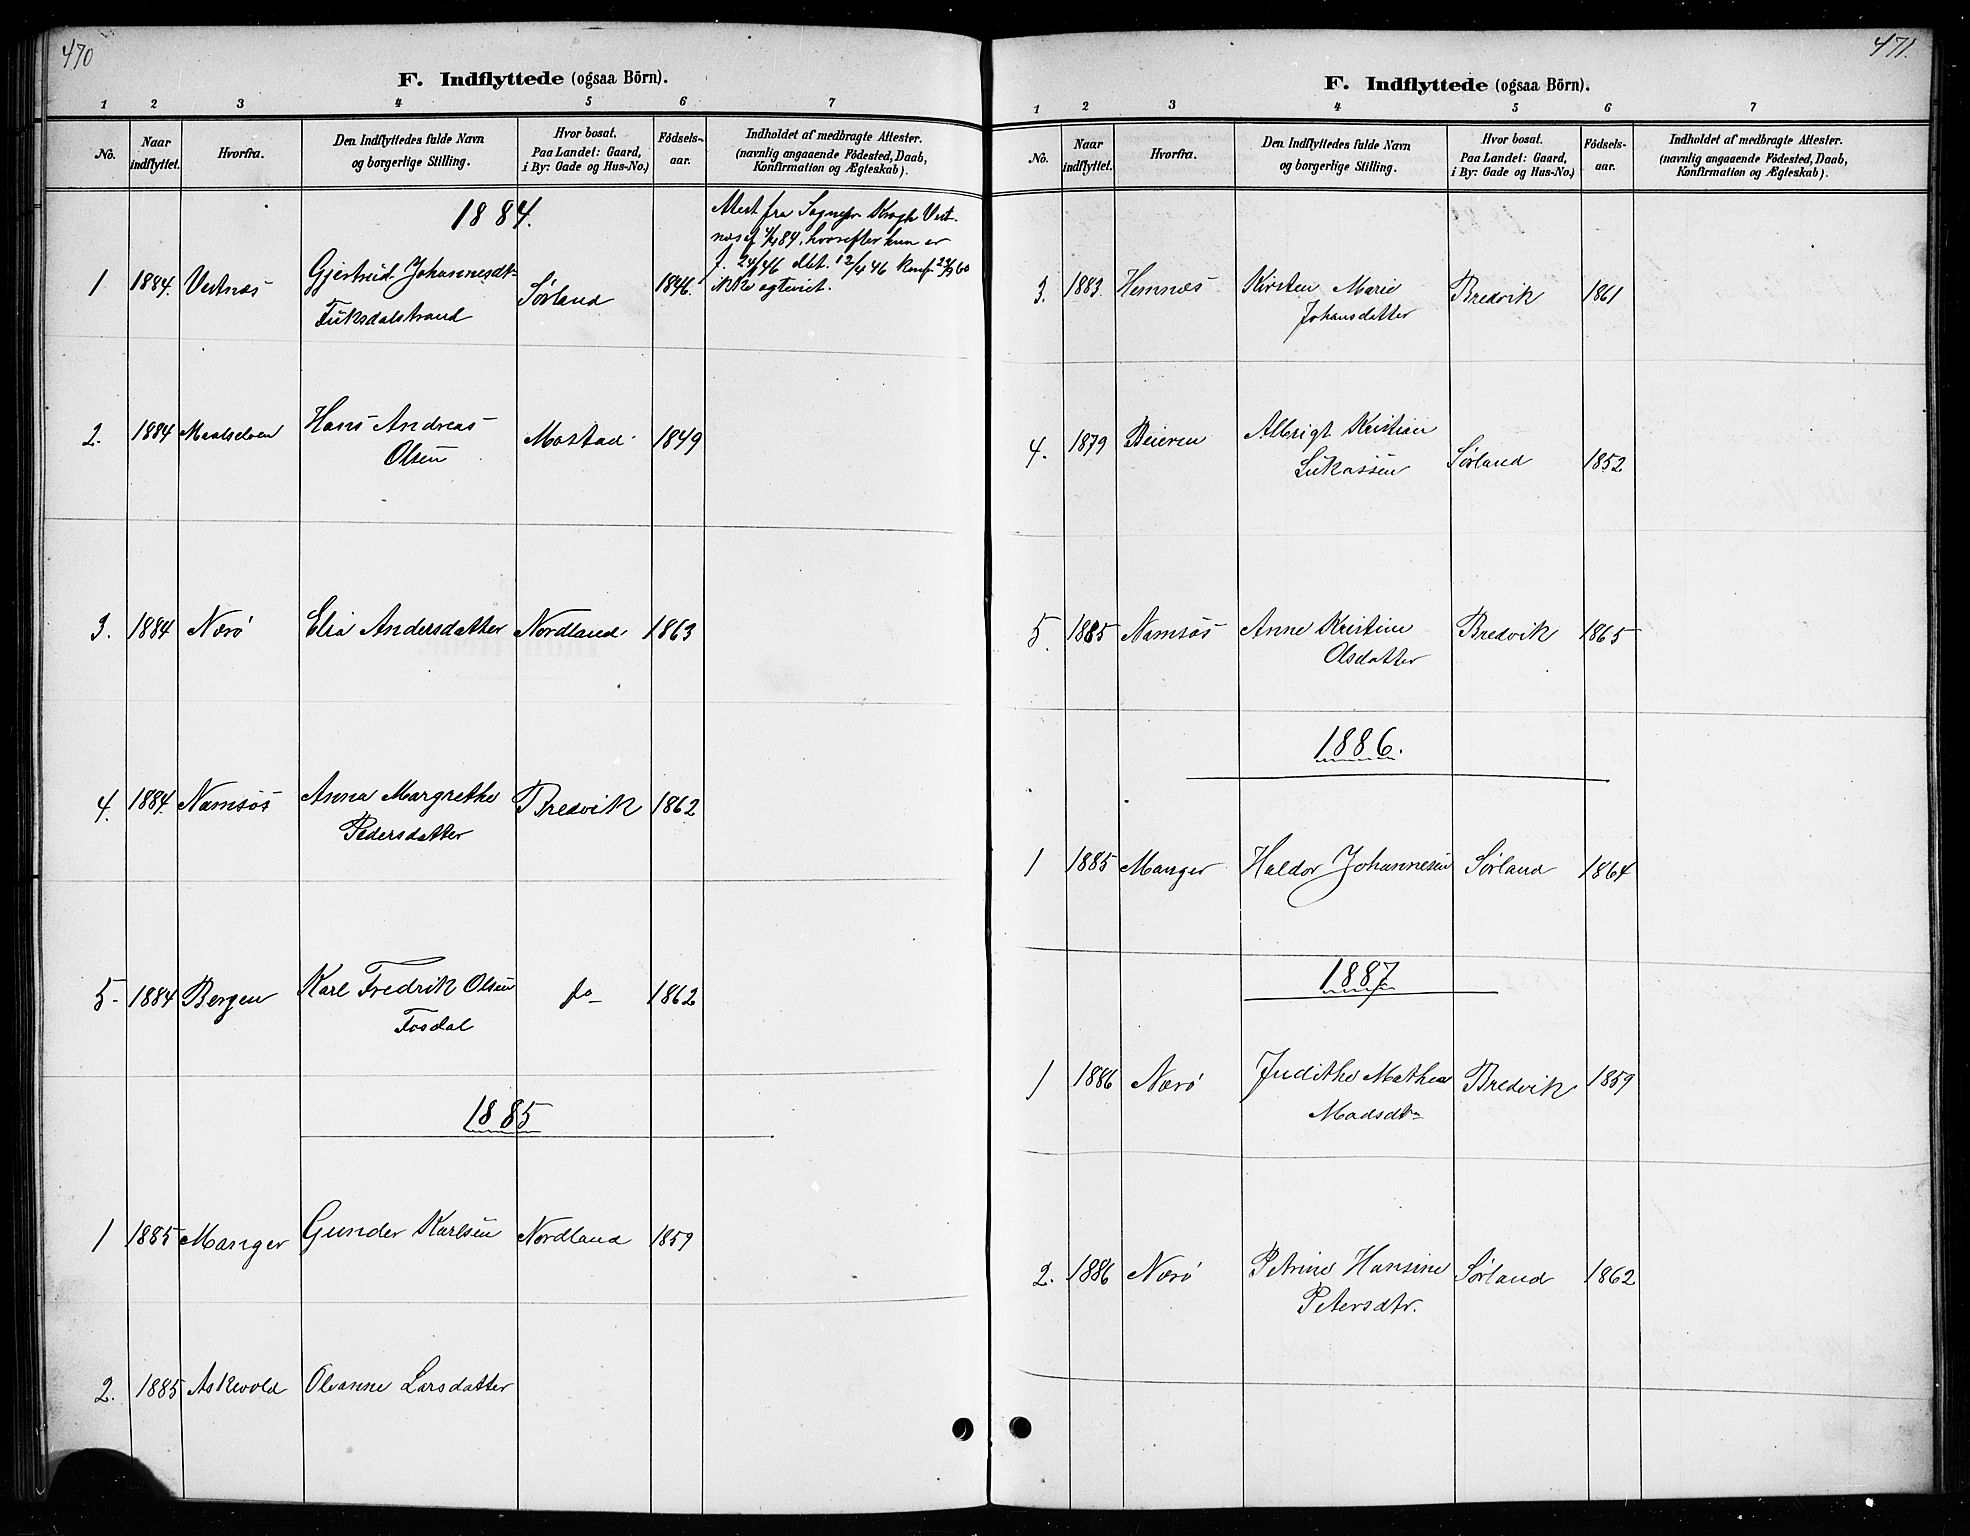 470
F. Indflyttede (ogsaa Börn).
1 2 3 4 5 6 7
No.
Naar
indflyttet.
Hvorfra.
Den Indflyttedes fulde Navn
og borgerlige Stilling.
Hvor bosat.
Paa Landet: Gaard,
i By: Gade og Hus-No.)
Födsels-
aar.
Indholdet af medbragte Attester.
(navnlig angaaende Födested, Daab,
Konfirmation og Ægteskab).
1884.
Attest fra Sognepr Krogh Vest-
næs af 4/4 84, hvorefter hun er
f. 24/1 46 dbt. 12/4 46 Konf. 23/9 60
ikke ægteviet.
1 1884. Vestnæs Gjertrud Johannesdtr Sørland 1846.
Fiksdalstrand
2. 1884 Maalselven Hans Andreas Mostad 1849
Olsen
3. 1884 Nærö Elia Andersdatter Nordland 1863
4. 1884. Namsos Anna Margrethe Bredvik 1862
Pedersdatter
5- 1884 Bergen Karl Fredrik Olsen do 1862
Fosdal
1885
1 1885 Manger Gunder Karlsen Nordland 1859
2. 1885 Askevold Olvanne Larsdatter
471.
F. Indflyttede (ogsaa Börn).
1 2 3 4 5 6 7
No.
Naar
indflyttet.
Hvorfra.
Den Indflyttedes fulde Navn
og borgerlige Stilling.
Hvor bosat.
Paa Landet: Gaard,
i By: Gade og Hus-No.)
Födsels-
aar.
Indholdet af medbragte Attester.
(navnlig angaaende Födested, Daab,
Konfirmation og Ægteskab).
3. 1883. Hemnæs Kirsten Marie Bredvik 1861
Johansdatter
4. 1879 Beieren Albrigt Kristian Sørland 1852
Lukassen
5. 1885 Namsos Anne Kristine Bredvik 1865
Olsdatter
1886.
1 1885 Manger Haldor Johannesen Sørland 1864
1887
1 1886 Nærö Judithe Mathea Bredvik 1859
Madsdtr
2. 1886 Nærö Petrine Hansine Sørland 1862
Petersdtr.